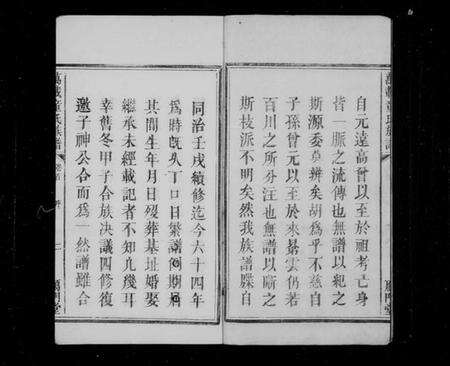 自元遠高曾以至於祖考亡身
皆一脈之流傳也無譜以紀之
斯源委莫辨矣胡爲乎不慈自
子孫曾元以至於來晜雲仍若
百川之所分注也無譜以晰之
斯枝派不明矣然我族譜牒自
同治壬戌續修迄今六十四年
爲時旣久丁口日繁譜
其間生年月日歿葬基址婚娶
繼承未經載記者不知凡幾耳
幸舊冬甲子合族決議四修復
邀子神公合而爲一然譜雖合
萬載童氏族譜 卷首 序 二 雁門堂